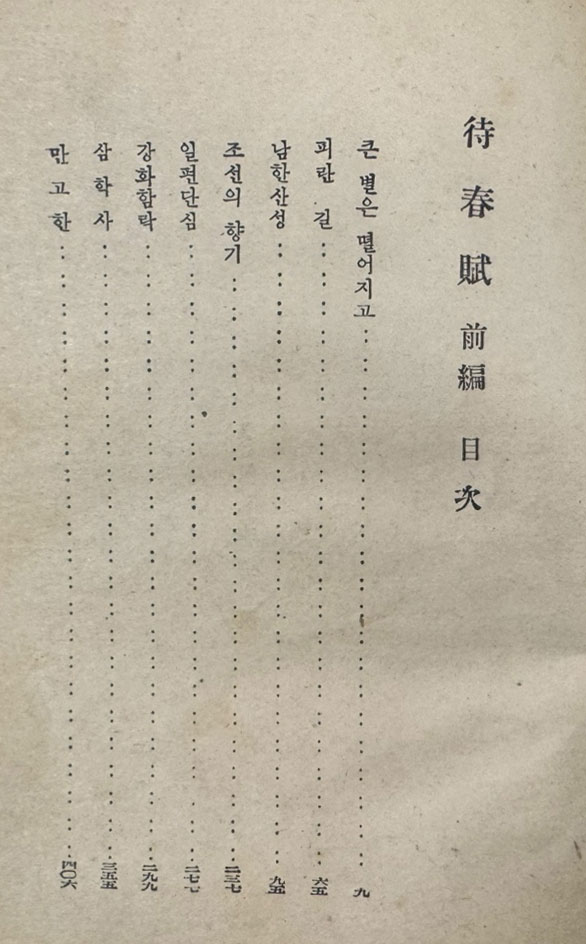 待春賦 前編 目次
큰 별은 떨어지고 ………… 九
피란 길 ………… 六五
남한산성 ………… 九五
조선의 향기 ………… 二三七
일편단심 ………… 二七七
강화함락 ………… 二九九
삼학사 ………… 三五五
만고한 ………… 四〇六